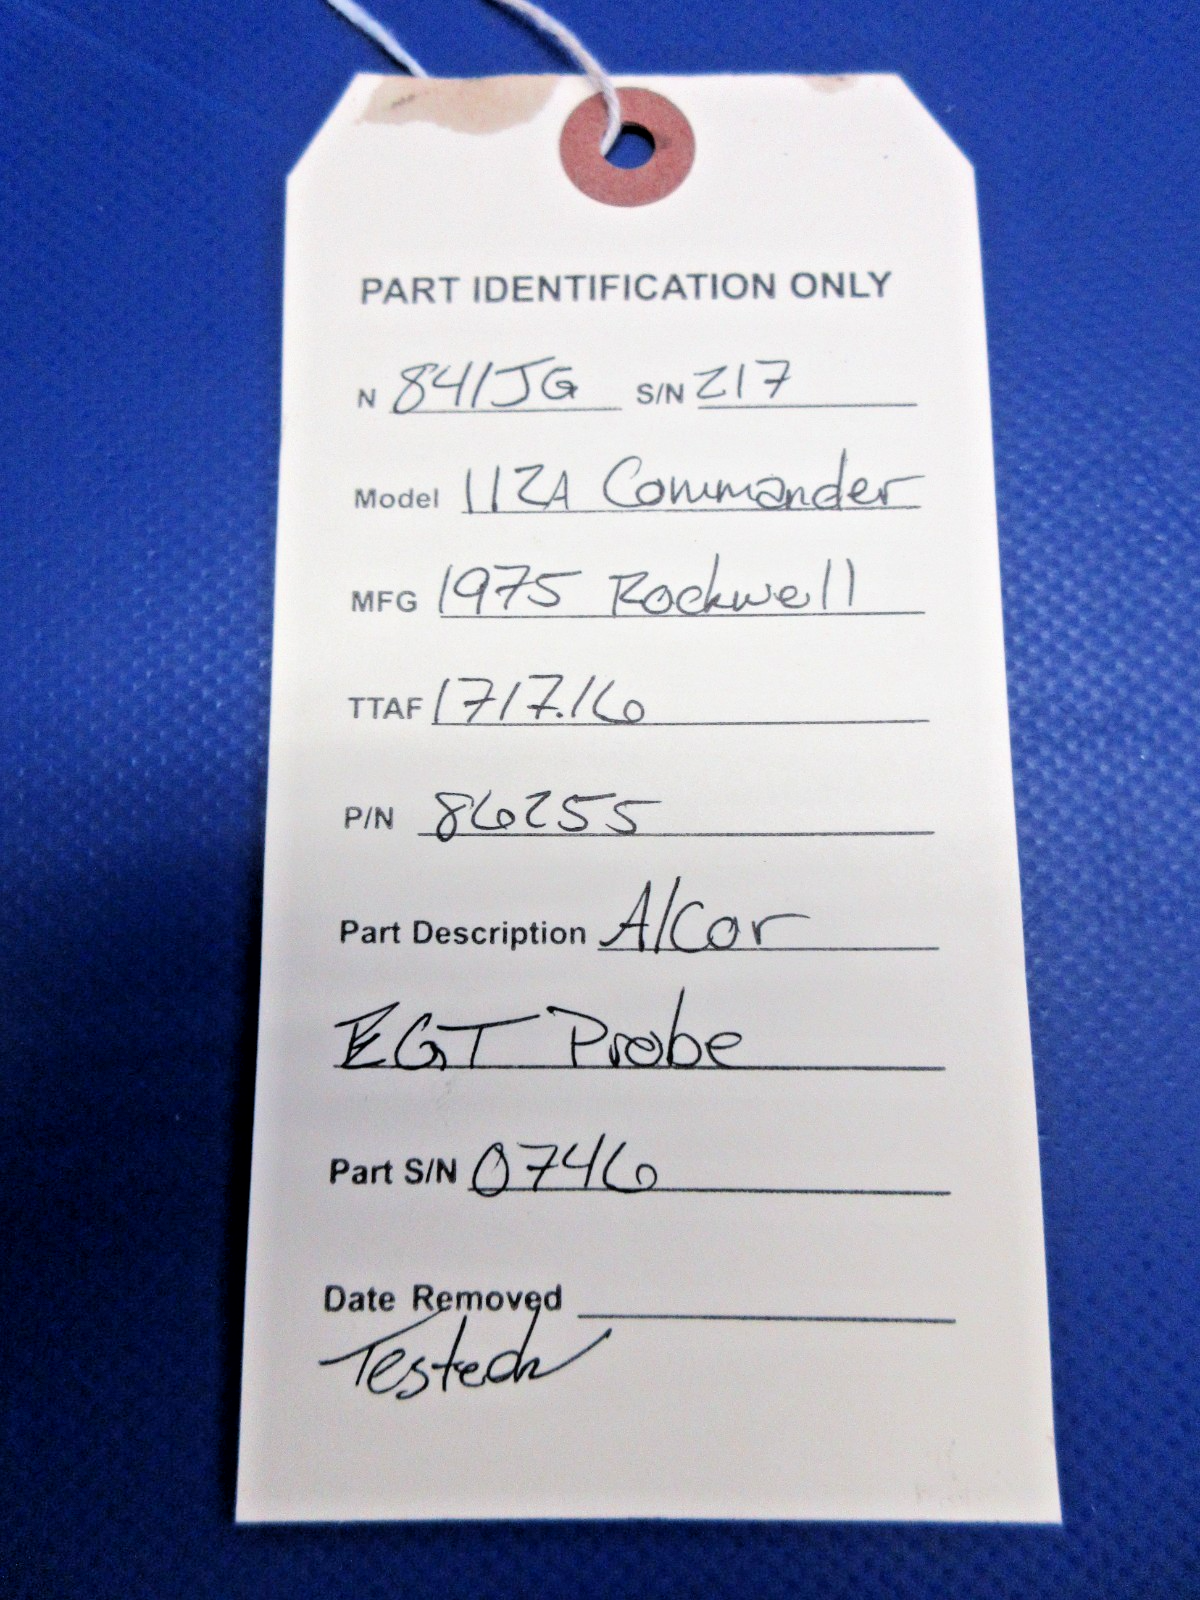 PART IDENTIFICATION ONLY
N 841JG S/N 217
Model 112A Commander
MFG 1975 Rockwell
TTAF 1717.16
P/N 86255
Part Description Alcor
EGT Probe
Part S/N 0746
Date Removed
Tested ✓